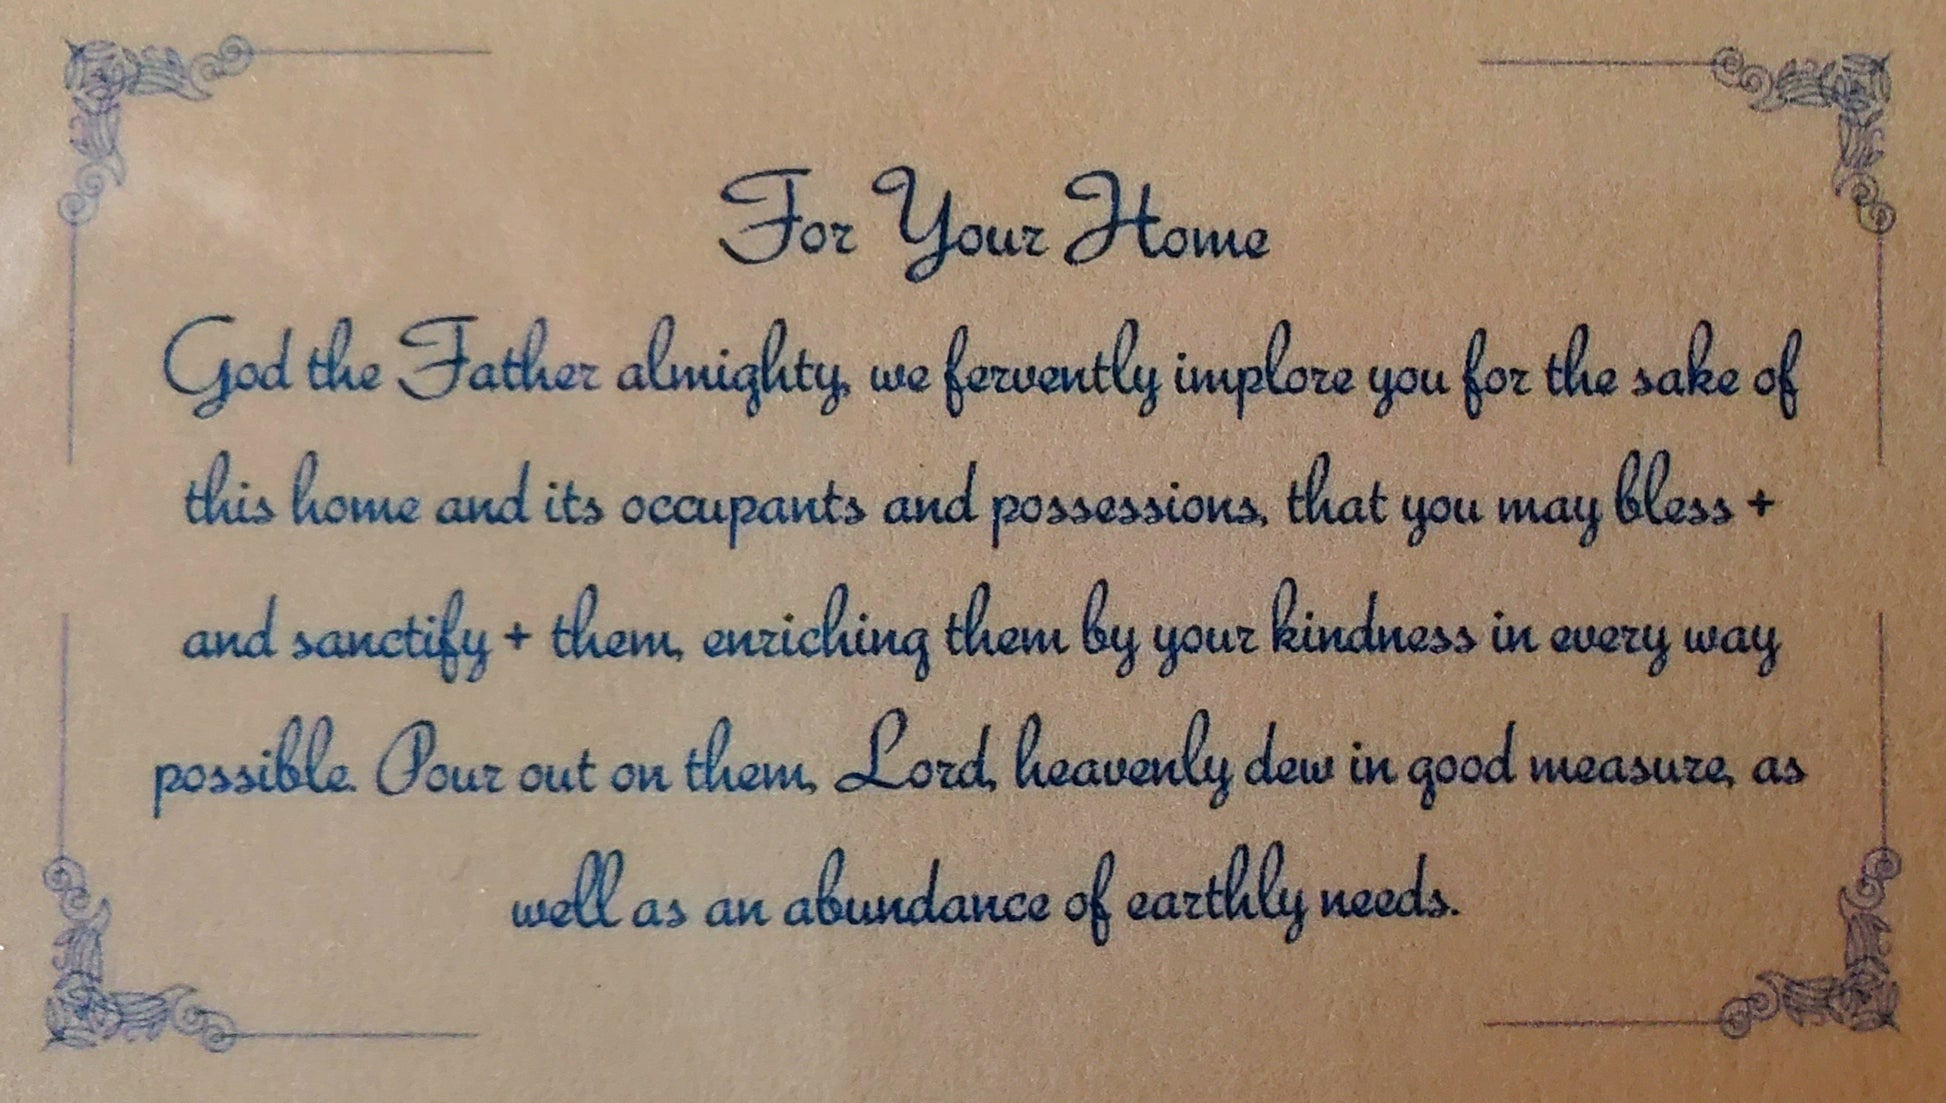 For Your Home
God the Father almighty, we fervently implore you for the sake of
this home and its occupants and possessions, that you may bless +
and sanctify + them, enriching them by your kindness in every way
possible. Pour out on them, Lord, heavenly dew in good measure, as
well as an abundance of earthly needs.